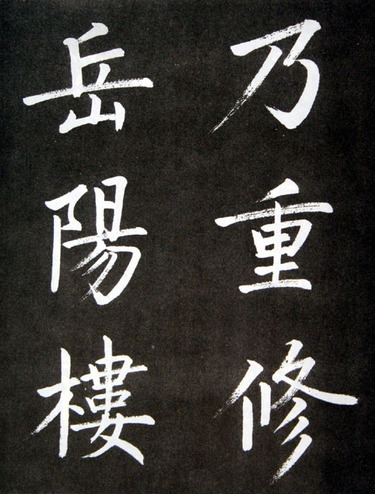 乃重修
岳陽樓